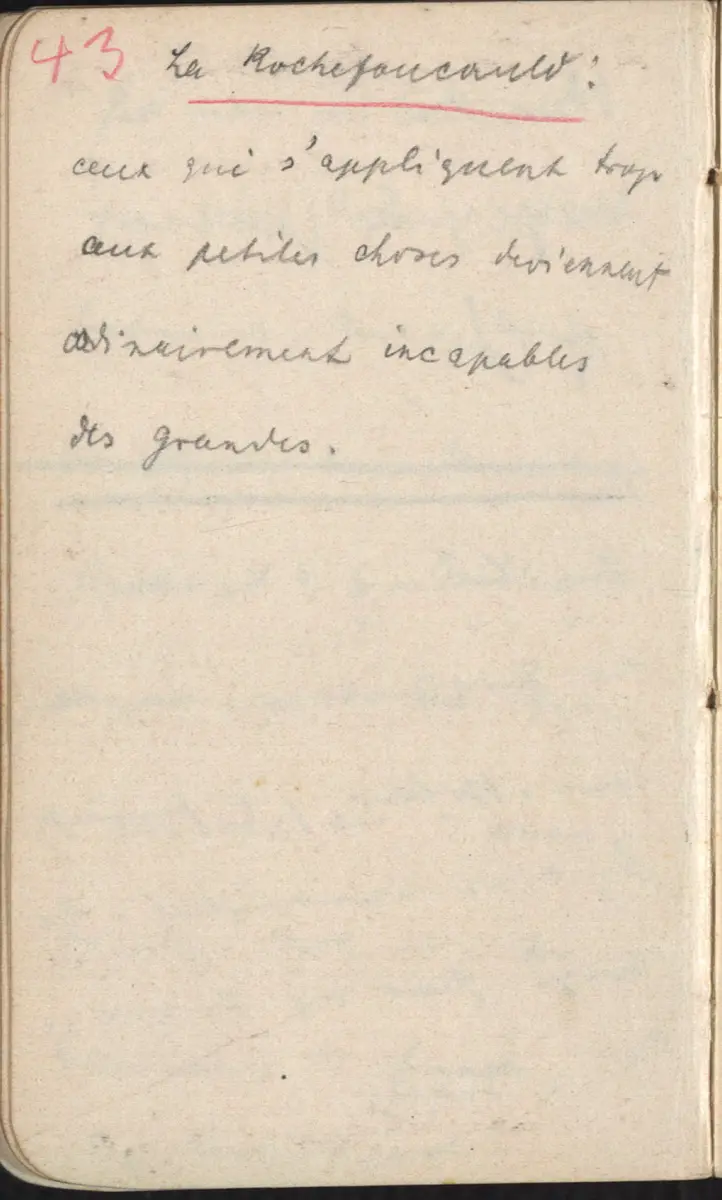 43 La Rochefoucauld:
ceux qui s'appliquent trop
aux petites choses deviennent
ordinairement incapables
des grandes.